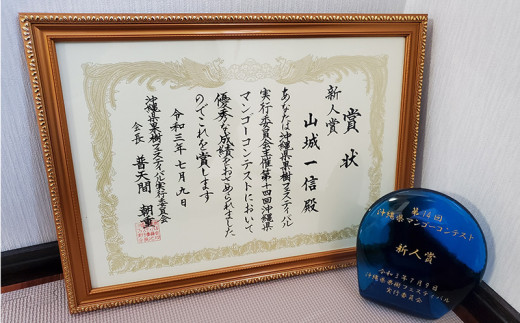 賞状
新人賞
山城一信殿
あなたは沖縄県果樹フェスティバル
実行委員会主催第十四回沖縄県
マンゴーコンテストにおいて
優秀な成績をおさめられました
のでこれを賞します
令和三年七月九日
沖縄県果樹フェスティバル実行委員会
会長 普天間朝重
第14回
沖縄県マンゴーコンテスト
新人賞
令和3年7月9日
沖縄県果樹フェスティバル
実行委員会